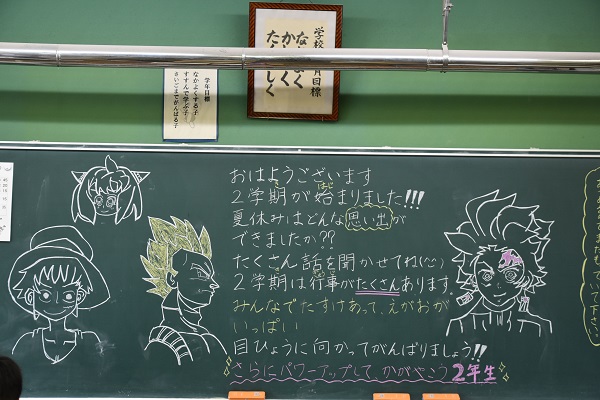 学校
月目標
なかよく
かしこく
たのしく
学年目標
なかよくする子
すすんで学ぶ子
さいごまでがんばる子
おはようございます
2学期が始まりました!!!
夏休みはどんな思い出が
できましたか??
たくさん話を聞かせてね(^^)
2学期は行事がたくさんあります。
みんなでたすけあって、えがおが
いっぱい
目ひょうに向かってがんばりましょう!!
さらにパワーアップして、かがやこう 2年生